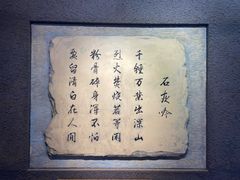 石灰吟
千錘万鑿出深山
烈火焚燒若等閒
粉骨碎身渾不怕
要留清白在人間